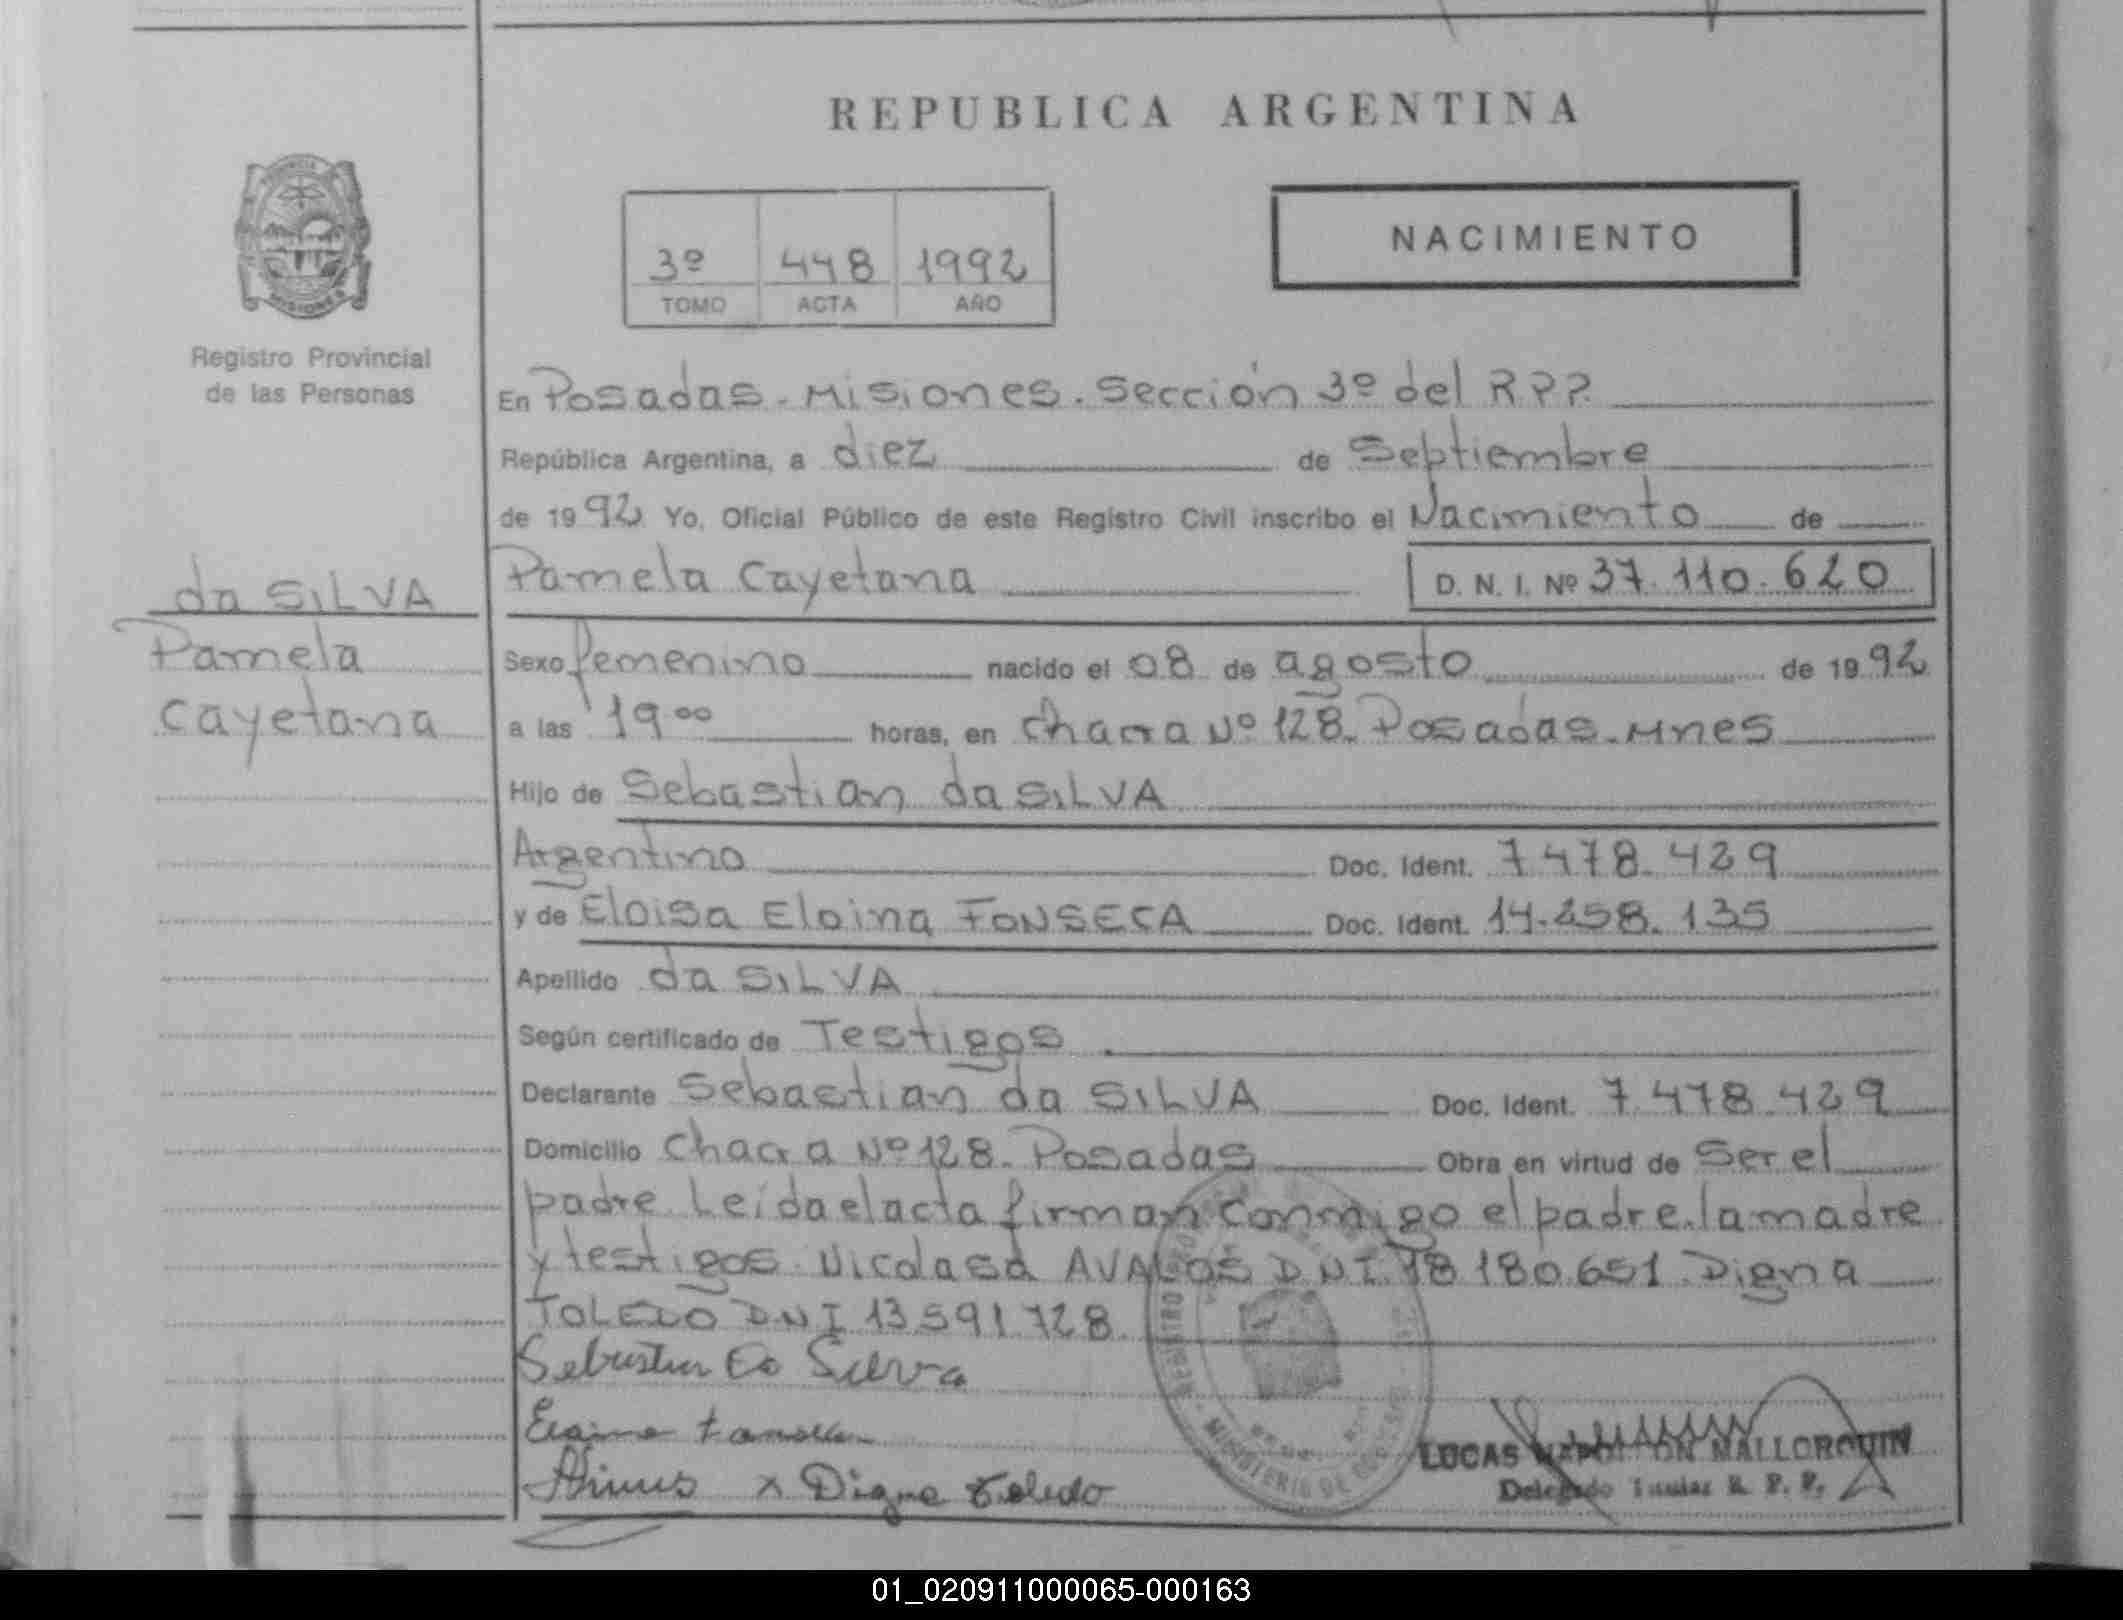 REPUBLICA ARGENTINA
3º 448 1992
TOMO ACTA AÑO
NACIMIENTO
Registro Provincial
de las Personas
En Posadas - Misiones. Sección 3º del R P P.
República Argentina, a diez de Septiembre
de 1992 Yo, Oficial Público de este Registro Civil inscribo el Nacimiento de
Pamela Cayetana D. N. I. Nº 37.110.620
da SILVA
Pamela
Cayetana
Sexo femenino nacido el 08 de agosto de 1992
a las 19 00 horas, en Chacra Nº 128. Posadas - Mnes
Hijo de Sebastian da SILVA
Argentino Doc. Ident. 7.478.429
y de Eloisa Eloina FONSECA Doc. Ident. 14.258.135
Apellido da SILVA
Según certificado de Testigos
Declarante Sebastian da SILVA Doc. Ident. 7.478.429
Domicilio Chacra Nº 128. Posadas Obra en virtud de Ser el
padre. Leída el acta firman conmigo el padre. la madre
y testigos. Nicolasa AVALOS D N I. 18 180.651. Digna
TOLEDO D N I 13 591.728.
Sebastian Da Silva
x Digna Toledo
LUCAS NAPOLEON MALLORQUIN
Delegado Titular R. P. P.
REGISTRO MINISTERIO DE GOBIERNO
01_020911000065-000163